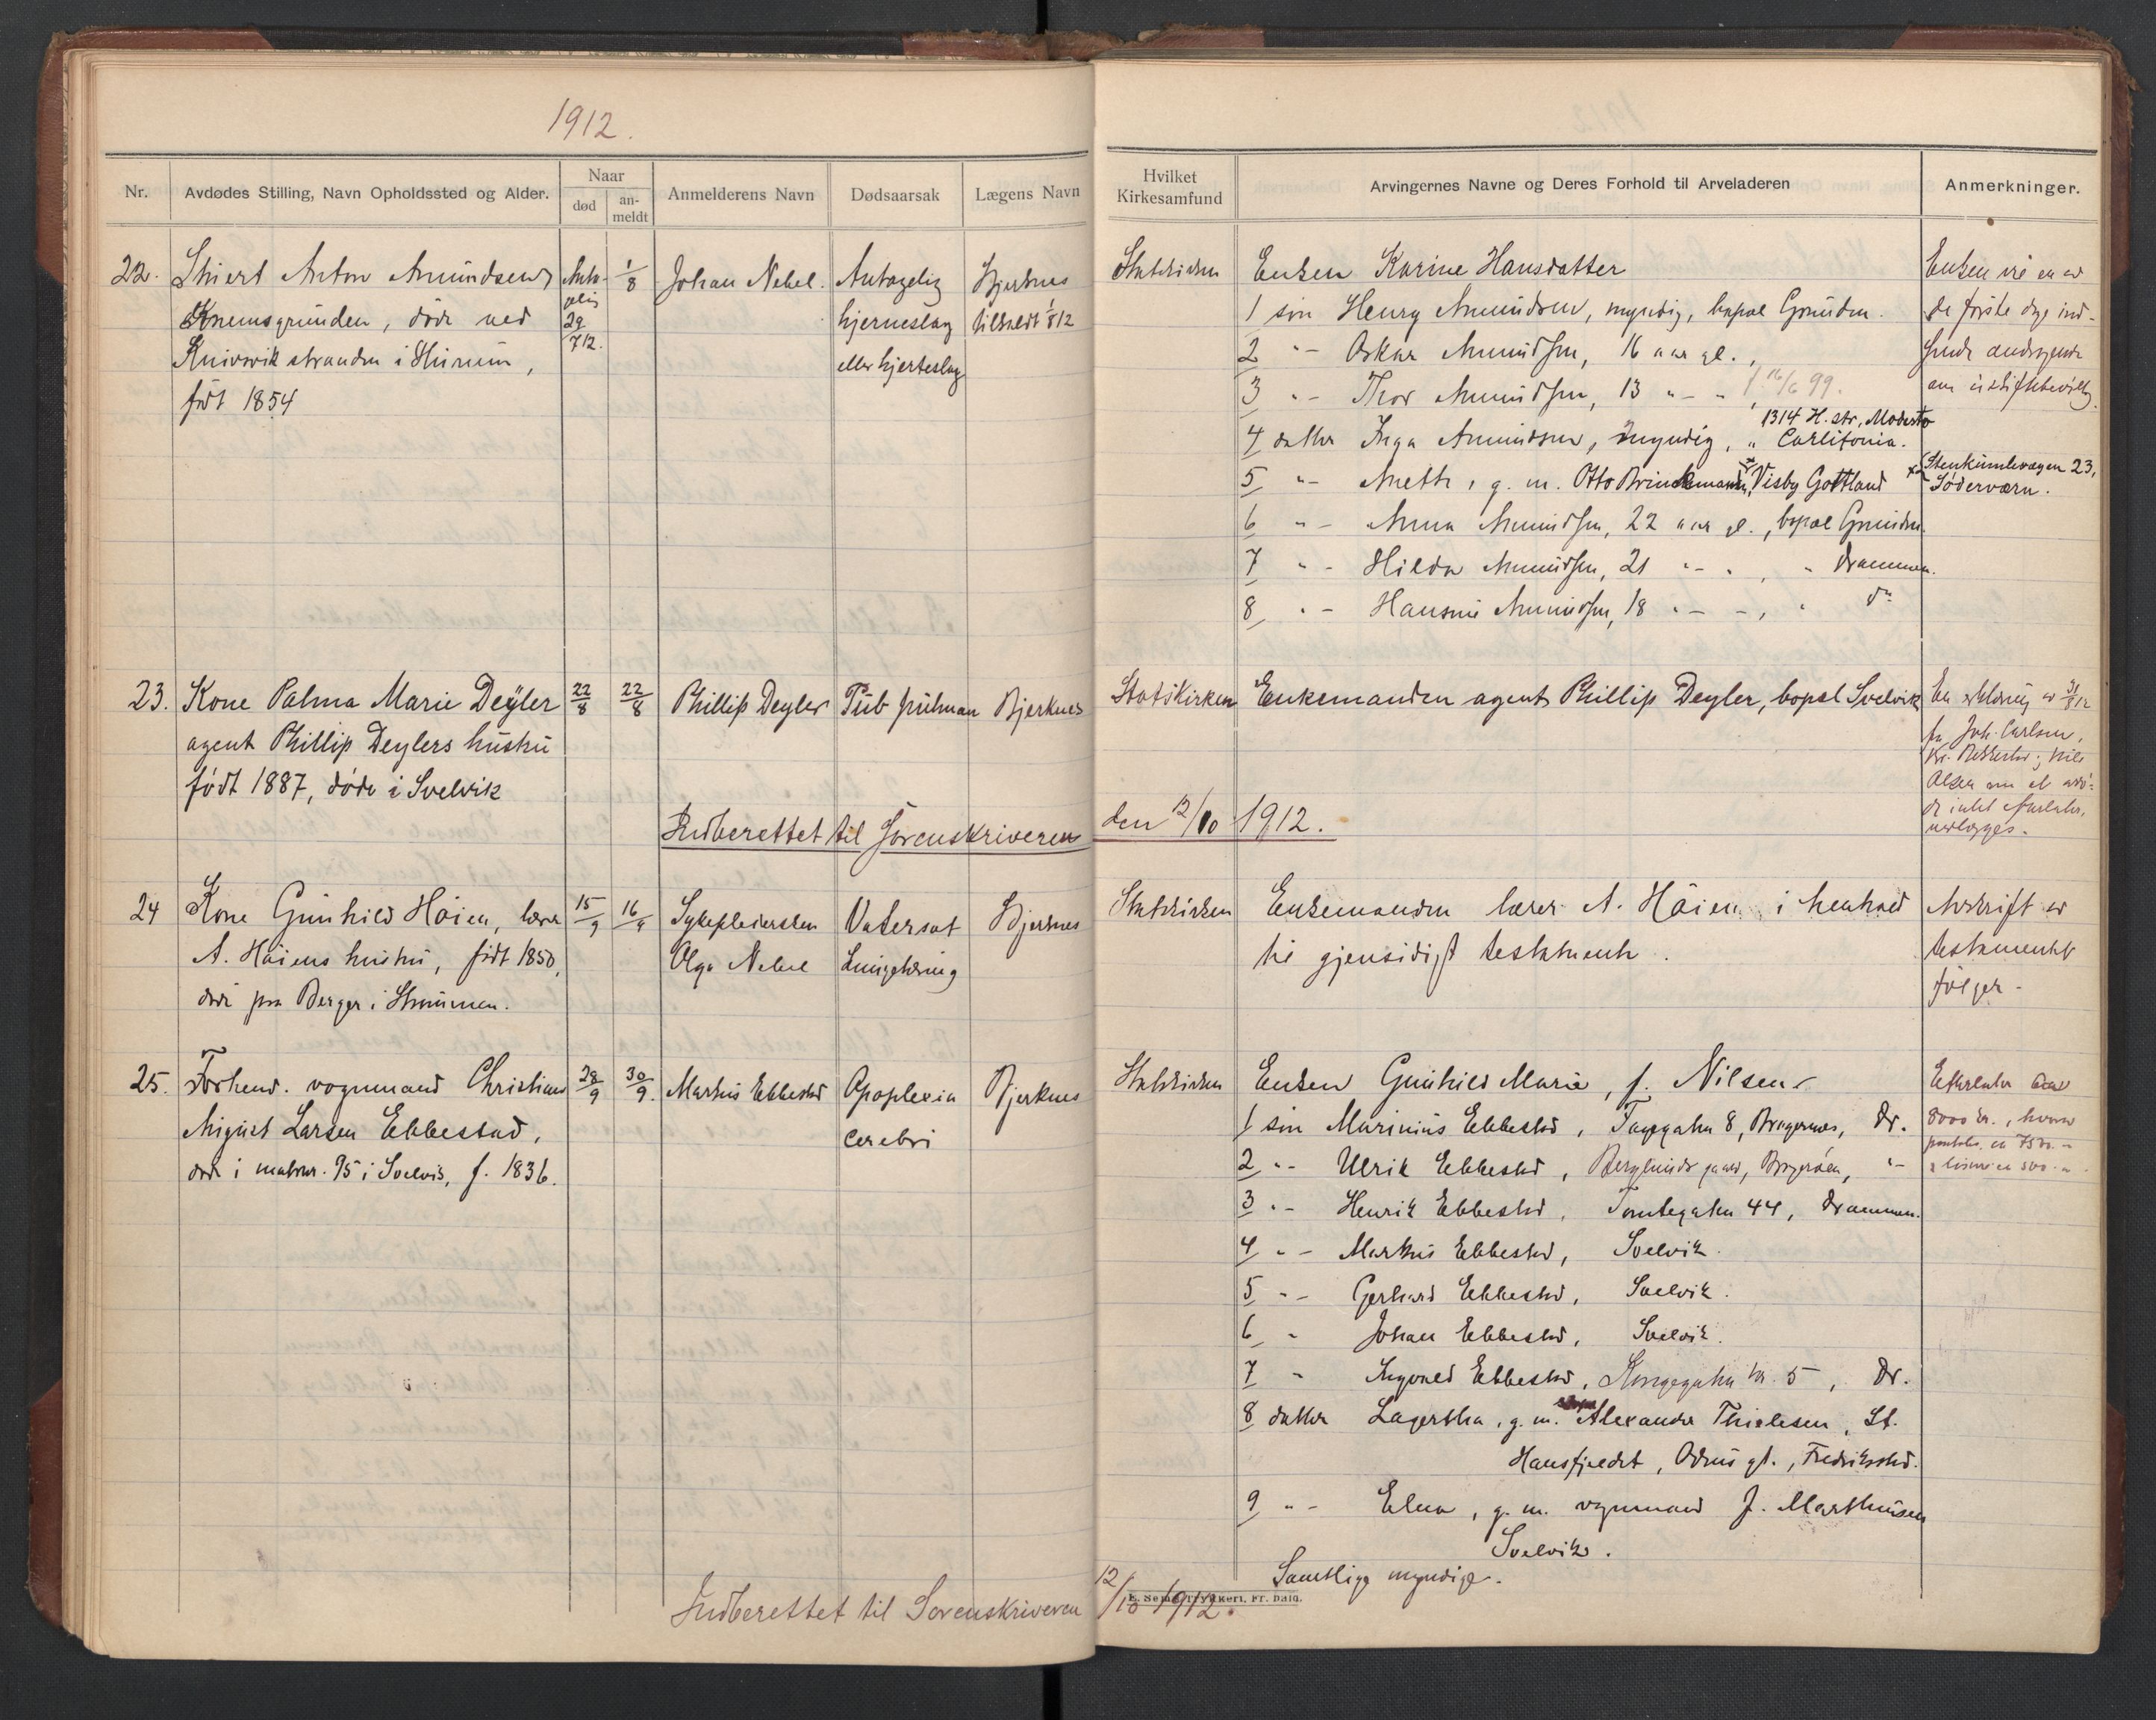 1912.
Nr.
Avdødes Stilling, Navn Opholdssted og Alder.
Naar
død
an-
meldt
Anmelderens Navn
Dødsaarsak
Lægens Navn
22.
Anton Amundsen
Knemsgrunden, døde ved
stranden i Hurum,
født 1854
29
712.
1/8
Johan Nebel.
Antagelig
hjerneslag
eller hjerteslag
Bjerknes
tilkaldt 1/8 12
23.
Kone Palma Marie Deyler
agent Phillip Deylers hustru
født 1887, døde i Svelvik
22/8
22/8
Phillip Deyler
Tub pulman
Bjerknes
Indberettet til Sorenskriveren
24
Kone Gunhild Höien, lærer
A. Höiens hustru, født 1850,
døde paa Berger i Strømmen.
15/9
16/9
Sykepleiersken
Olga Nebel
Vatersot
Bjerknes
25.
Forhenv. vognmand Christian
August Larsen Ebbestad,
døde i matrnr. 95 i Svelvik, f. 1836.
28/9
30/9.
Markus Ebbestad
Apoplexia
cerebri
Bjerknes
Indberettet til Sorenskriveren
Hvilket
Kirkesamfund
Arvingernes Navne og Deres Forhold til Arveladeren
Anmerkninger.
Statskirken
Enken Karine Hansdatter
1 søn Henry Amundsen, myndig, bopæl Grunden.
2 "- Oskar Amundsen, 16 aar gl.,
3 "- Thor Amundsen, 13 "- " 16/6 99.
1314 H. str, Modesto
4 datter Inga Amundsen, myndig, " Carlifonia.
5 "- Anette, g. m. Otto Brinckmann, Visby Gottland
6 "- Anna Amundsen, 22 aar gl., bopæl Grunden.
7 "- Hilda Amundsen, 21 "- ", " Drammen.
8 "- Hansine Amundsen, 18 "- -, " do
Enken vil en av
de første dage ind-
sende andragende
om uskiftebevilling.
Stenkumlevægen 23,
Södervärn.
Statskirken
Enkemanden agent Phillip Deyler, bopæl Svelvik
En erklæring av 31/8 12
fra Joh. Carlsen,
Olsen om at
intet
vedlægges.
den 12/10 1912.
Statskirken
Enkemanden lærer A. Höien i henhold
til gjensidigt testamente.
Avskrift av
testamentet
følger.
Statskirken
Enken Gunhild Marie, f. Nilsen
1 søn Marinius Ebbestad, 8, Bragernes, Dr.
2 "- Ulrik Ebbestad, Berglunds gaard, Bragerøen, "-
3 "- Henrik Ebbestad, Tomtegaten 44, Drammen.
4 "- Markus Ebbestad, Svelvik.
5 "- Gerhard Ebbestad, Svelvik.
6 " Johan Ebbestad, Svelvik.
7 " Ingvald Ebbestad, Kongegaten nr. 5, Dr.
8 datter Lagertha, g. m. Alexander Thielesen, St.
Hansfjeldet, Odins gt., Fredriksstad.
9 "- Elna, g. m. vognmand J. Marthinsen
Svelvik.
Samtlige myndige.
Efterlater
8000 kr., hvorav
12/10 1912.